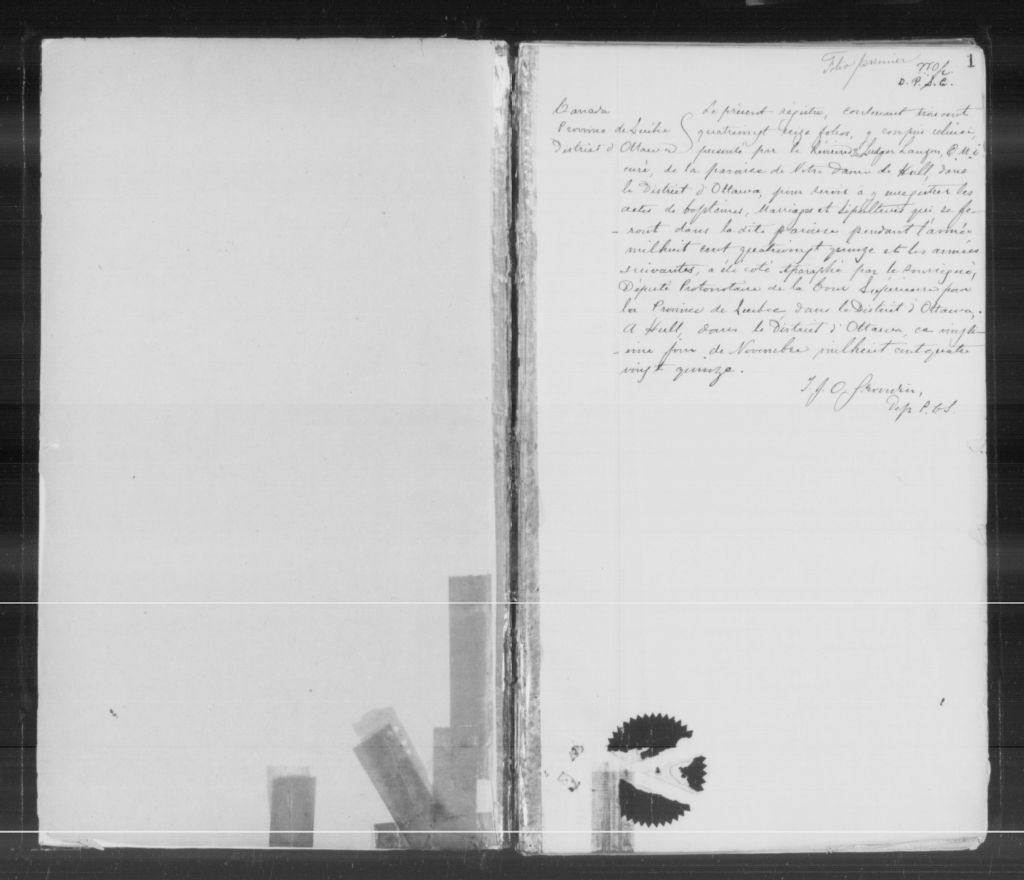 1
Folio premier
D. P. S. C.
Canada
Province de Québec
District d'Ottawa
Le présent régistre, contenant trois cent
quatrevingt seize folios, y compris celui-ci,
présenté par le Révérend Ludger Lauzon, O.M.I
curé, de la paroisse de Notre Dame de Hull, dans
le District d'Ottawa, pour servir à y enregistrer les
actes de baptêmes, Mariages et Sépultures qui se fe-
-ront dans la dite paroisse pendant l'année
mil huit cent quatrevingt quinze et les années
suivantes, a été coté & paraphé par le soussigné,
Député Protonotaire de la Cour Supérieure pour
la Province de Québec, dans le District d'Ottawa,.
A Hull, dans le District d'Ottawa, ce vingt-
-ième jour de Novembre mil huit cent quatre
vingt quinze.
Dep P. C. S.